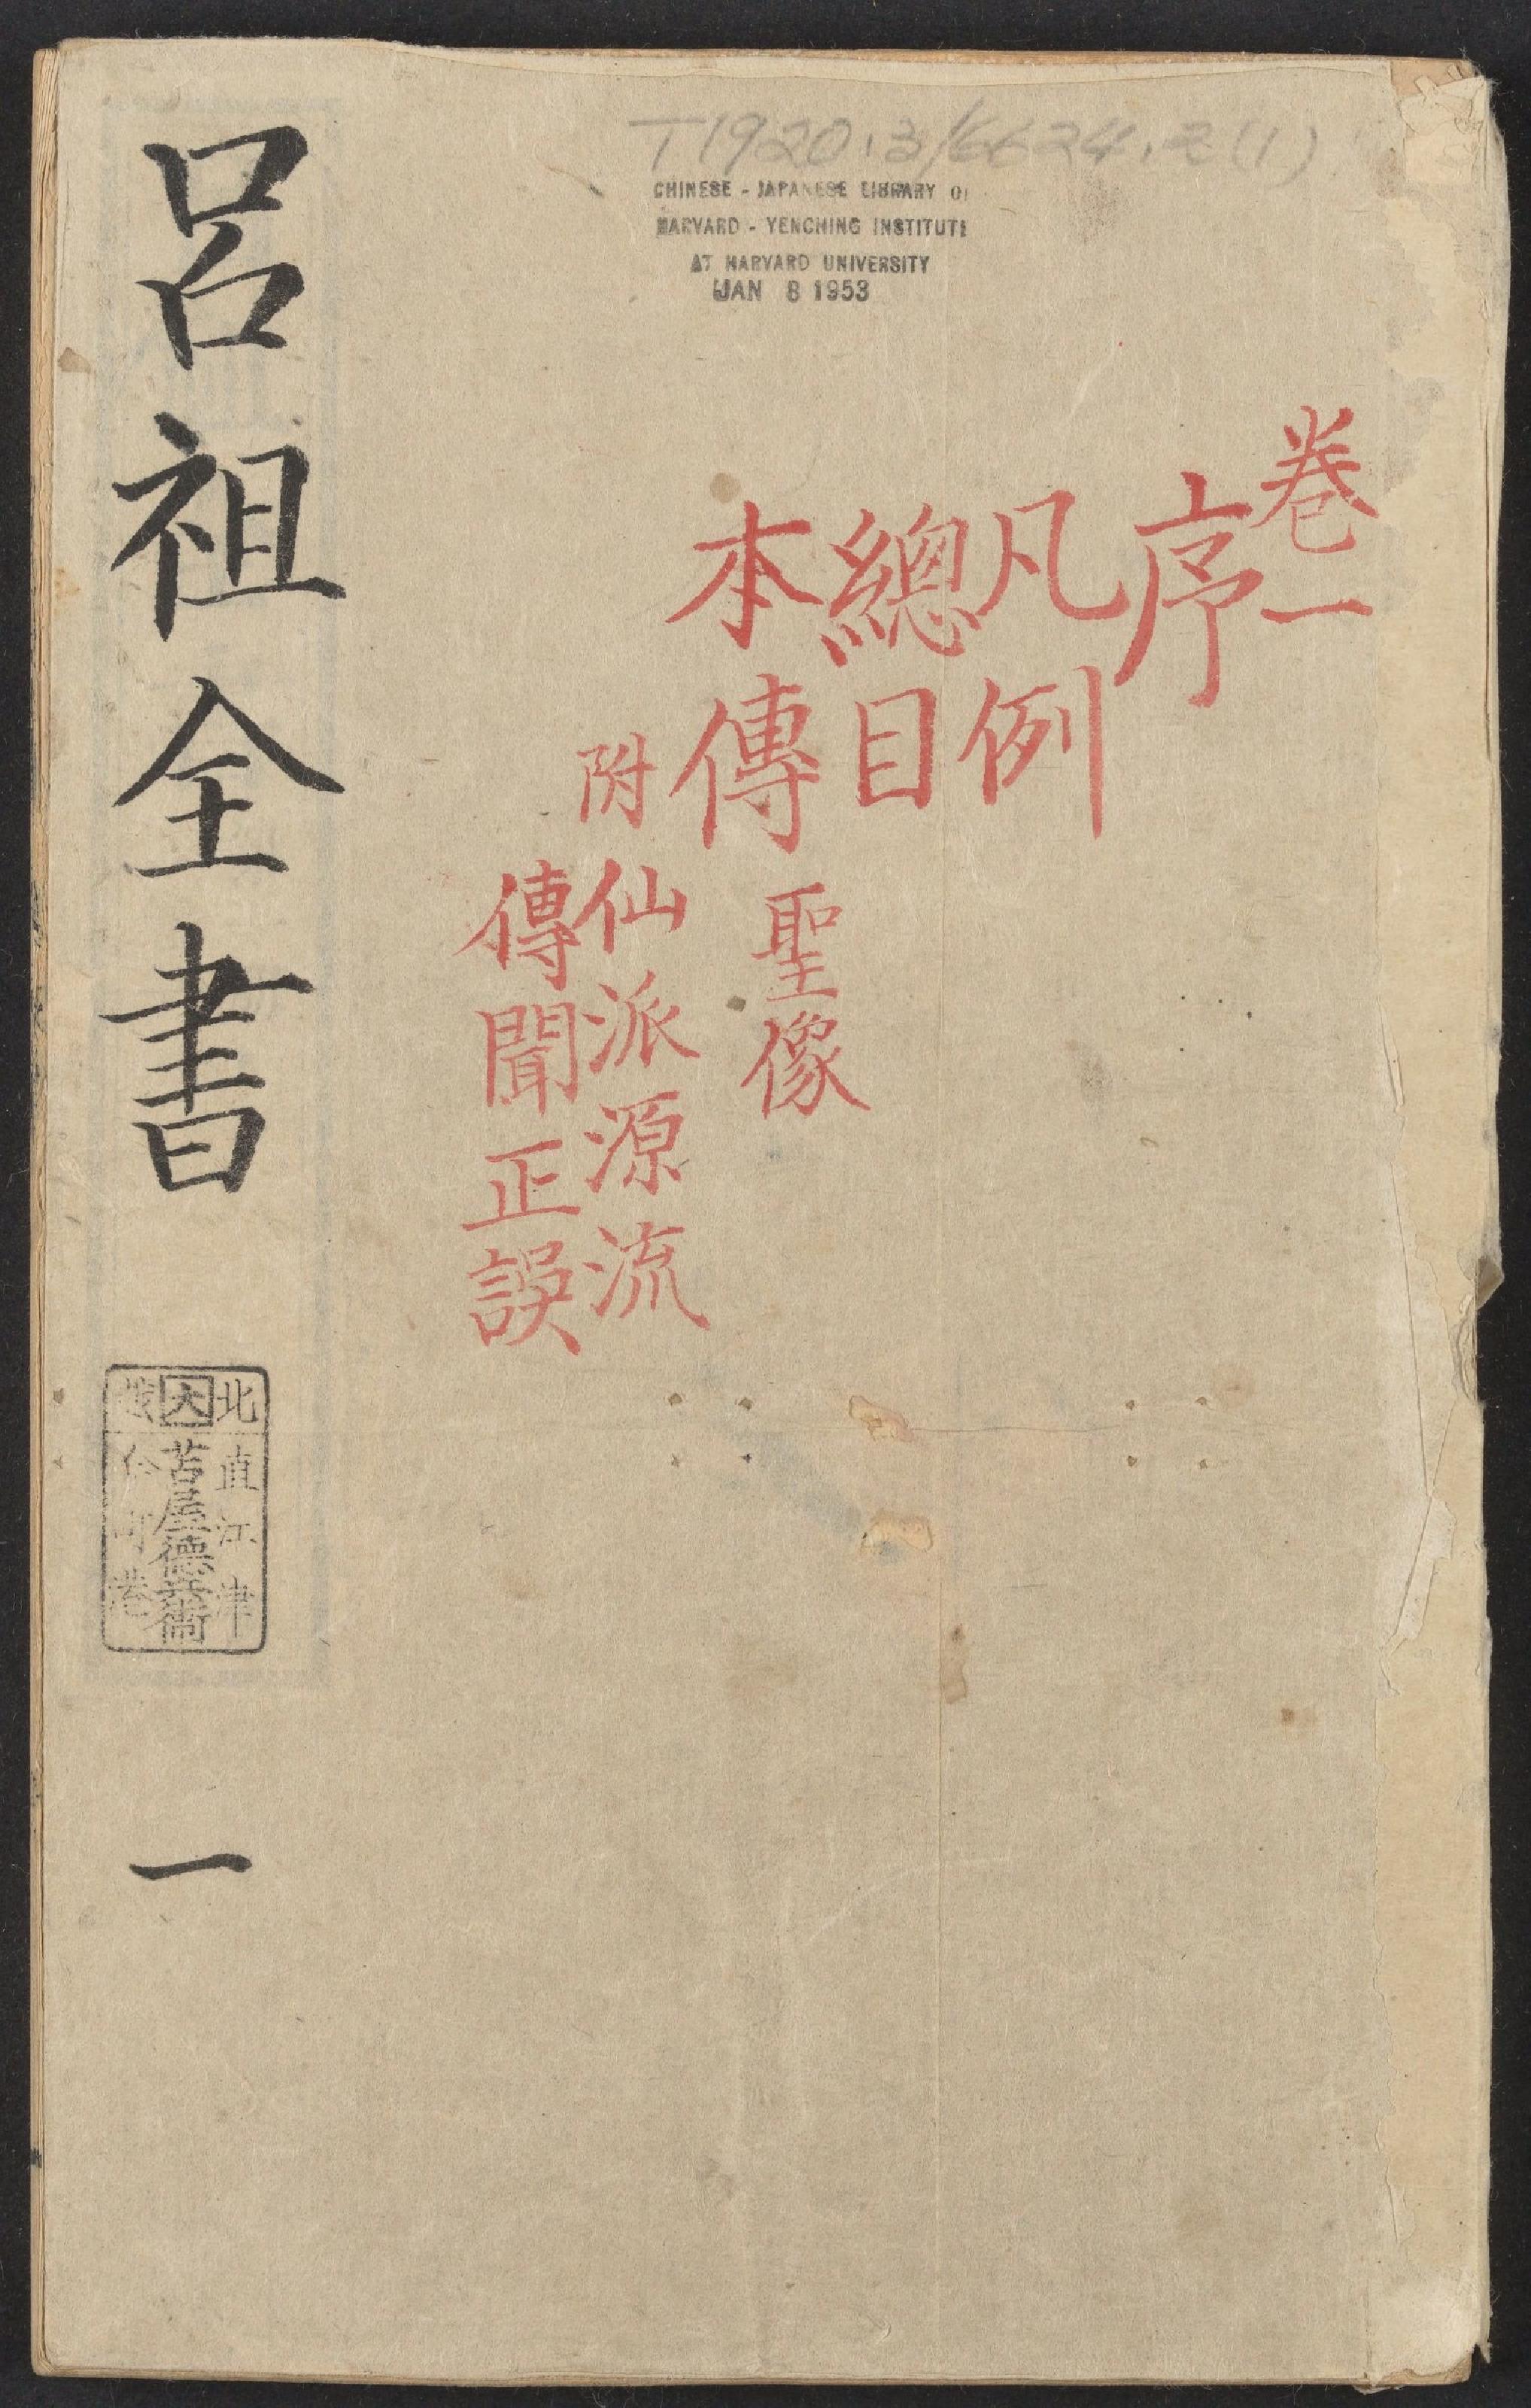 T1920.3/6624.2(1)
CHINESE - JAPANESE LIBRARY O
HARVARD - YENCHING INSTITUTE
AT HARVARD UNIVERSITY
JAN 8 1953
卷一
序
凡例
總目
本傳 聖像
附 仙派源流
傳聞正誤
呂祖全書
北直江津
大 苫屋德兵衞
町港
一